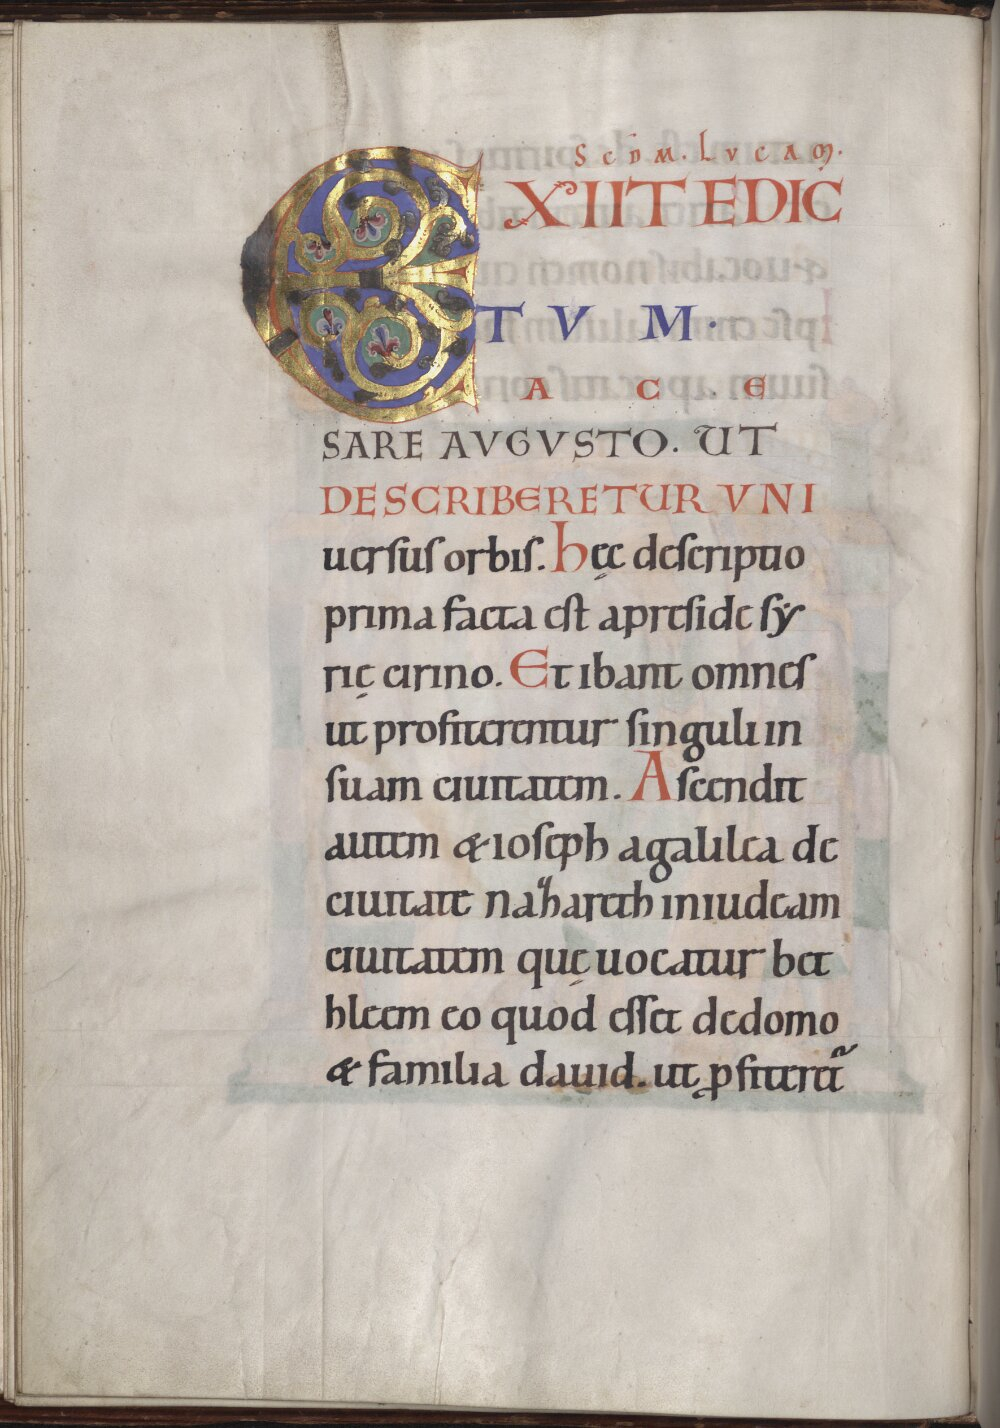 SCDM. LVCAM.
EXIIT EDIC
TVM.
A C E
SARE AVGVSTO. UT
DESCRIBERETUR VNI
uersus orbis. hęc descriptio
prima facta est apreside sẏ
rię cirino. Et ibant omnes
ut profiterentur singuli in
suam ciuitatem. Ascendit
autem & ioseph agalilea de
ciuitate nazhareth iniudeam
ciuitatem quę uocatur bet
hleem eo quod esset dedomo
& familia dauid. ut ꝓfiteret̃